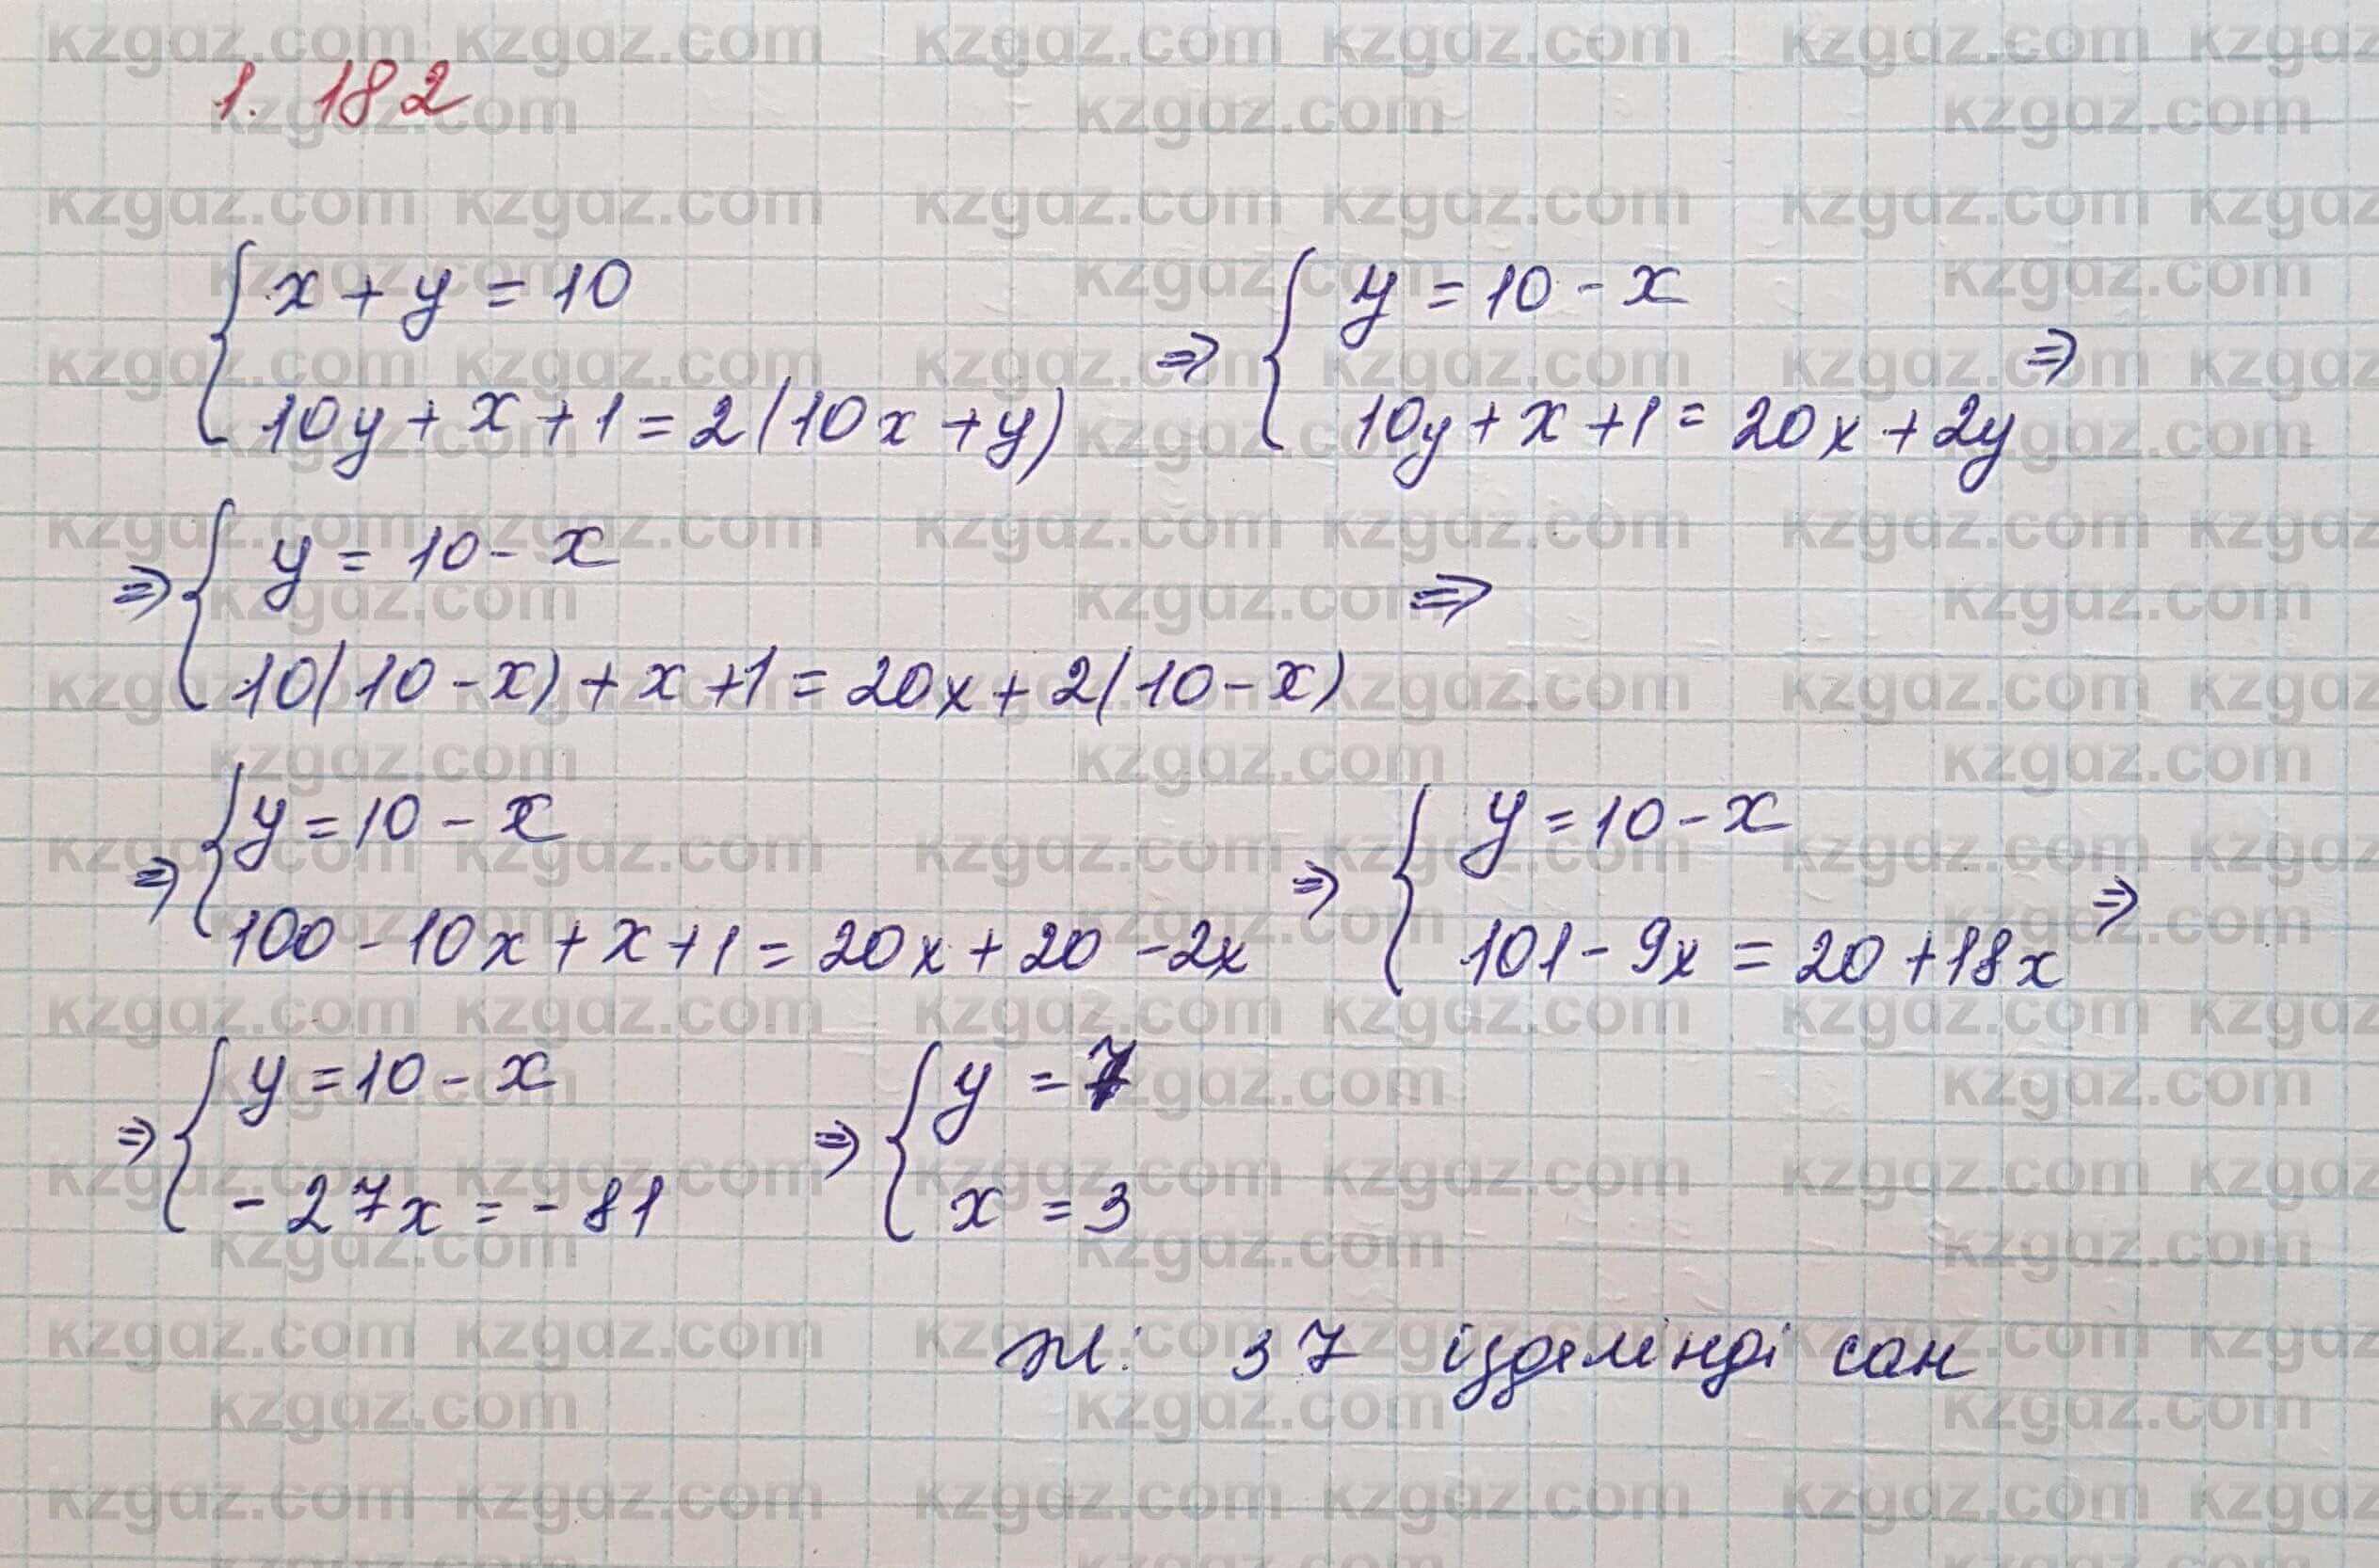 1.182
{ x + y = 10
10y + x + 1 = 2(10x + y) ⇒ { y = 10 - x
10y + x + 1 = 20x + 2y ⇒
⇒ { y = 10 - x
10(10 - x) + x + 1 = 20x + 2(10 - x) ⇒
⇒ { y = 10 - x
100 - 10x + x + 1 = 20x + 20 - 2x ⇒ { y = 10 - x
101 - 9x = 20 + 18x ⇒
⇒ { y = 10 - x
- 27x = - 81 ⇒ { y = 7
x = 3
Ж: 37 ізделінді сан
kzgdz.com